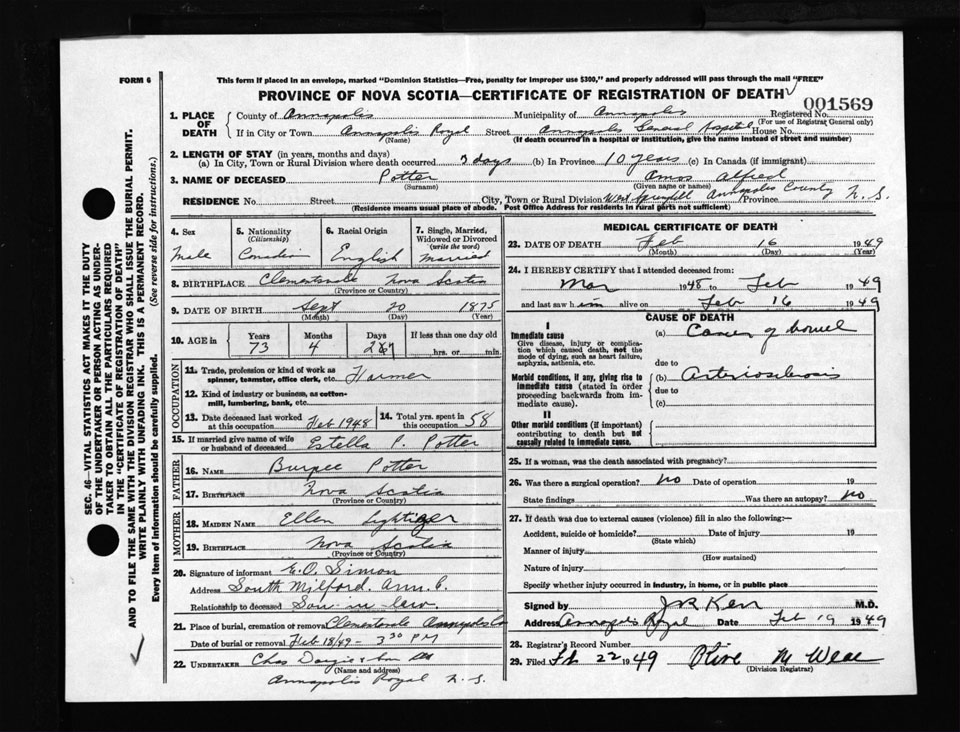 FORM 6
This form if placed in an envelope, marked "Dominion Statistics—Free, penalty for improper use $300," and properly addressed will pass through the mail "FREE"
PROVINCE OF NOVA SCOTIA—CERTIFICATE OF REGISTRATION OF DEATH
001569
1. PLACE OF DEATH County of Annapolis Municipality of Annapolis Registered No.
(For use of Registrar General only)
If in City or Town Annapolis Royal Street Annapolis General Hospital House No.
(Name) (If death occurred in a hospital or institution, give the name instead of street and number)
2. LENGTH OF STAY (in years, months and days)
(a) In City, Town or Rural Division where death occurred 3 days (b) In Province 10 years (c) In Canada (if immigrant)
3. NAME OF DECEASED Potter Amos Alfred
(Surname) (Given name or names)
RESIDENCE No. Street City, Town or Rural Division West Annapolis County Province N.S.
(Residence means usual place of abode. Post Office Address for residents in rural parts not sufficient)
4. Sex Male
5. Nationality (Citizenship) Canadian
6. Racial Origin English
7. Single, Married, Widowed or Divorced (write the word) Married
8. BIRTHPLACE Clementsvale Nova Scotia
(Province or Country)
9. DATE OF BIRTH Sept 20 1875
(Month) (Day) (Year)
10. AGE in Years Months Days If less than one day old
73 4 27 hrs. or min.
OCCUPATION
11. Trade, profession or kind of work as spinner, teamster, office clerk, etc. Farmer
12. Kind of industry or business, as cotton-mill, lumbering, bank, etc.
13. Date deceased last worked at this occupation Feb 1948 14. Total yrs. spent in this occupation 58
15. If married give name of wife or husband of deceased Estella P. Potter
FATHER
16. NAME Burpee Potter
17. BIRTHPLACE Nova Scotia
(Province or Country)
MOTHER
18. MAIDEN NAME Ellen
19. BIRTHPLACE Nova Scotia
(Province or Country)
20. Signature of informant E.O. Simon
Address South Milford. Ann. C.
Relationship to deceased Son-in-law.
21. Place of burial, cremation or removal Clementsvale Annapolis Co
Date of burial or removal Feb 18/49 - 3 30 PM
22. UNDERTAKER Chas & Son
(Name and address)
Annapolis Royal N.S.
MEDICAL CERTIFICATE OF DEATH
23. DATE OF DEATH Feb 16 1949
(Month) (Day) (Year)
24. I HEREBY CERTIFY that I attended deceased from:
Mar 1948 to Feb 1949
and last saw him alive on Feb 16 1949
CAUSE OF DEATH
I
Immediate cause
Give disease, injury or complication which caused death, not the mode of dying, such as heart failure, asphyxia, asthenia, etc.
(a) Cancer of bowel
due to
Morbid conditions, if any, giving rise to immediate cause (stated in order proceeding backwards from immediate cause).
(b) Arteriosclerosis
due to
(c)
II
Other morbid conditions (if important) contributing to death but not causally related to immediate cause.
25. If a woman, was the death associated with pregnancy?
26. Was there a surgical operation? no Date of operation 19
State findings Was there an autopsy? no
27. If death was due to external causes (violence) fill in also the following:—
Accident, suicide or homicide? Date of injury 19
(State which)
Manner of injury
(How sustained)
Nature of injury
Specify whether injury occurred in industry, in home, or in public place
Signed by J R Kerr M.D.
Address Annapolis Royal Date Feb 19 1949
28. Registrar's Record Number
29. Filed Feb 22 1949 Olive M
(Division Registrar)
SEC. 46—VITAL STATISTICS ACT MAKES IT THE DUTY
OF THE UNDERTAKER OR PERSON ACTING AS UNDER-
TAKER TO OBTAIN ALL THE PARTICULARS REQUIRED
IN THE "CERTIFICATE OF REGISTRATION OF DEATH"
AND TO FILE THE SAME WITH THE DIVISION REGISTRAR WHO SHALL ISSUE THE BURIAL PERMIT.
WRITE PLAINLY WITH UNFADING INK. THIS IS A PERMANENT RECORD.
Every item of information should be carefully supplied. (See reverse side for instructions.)